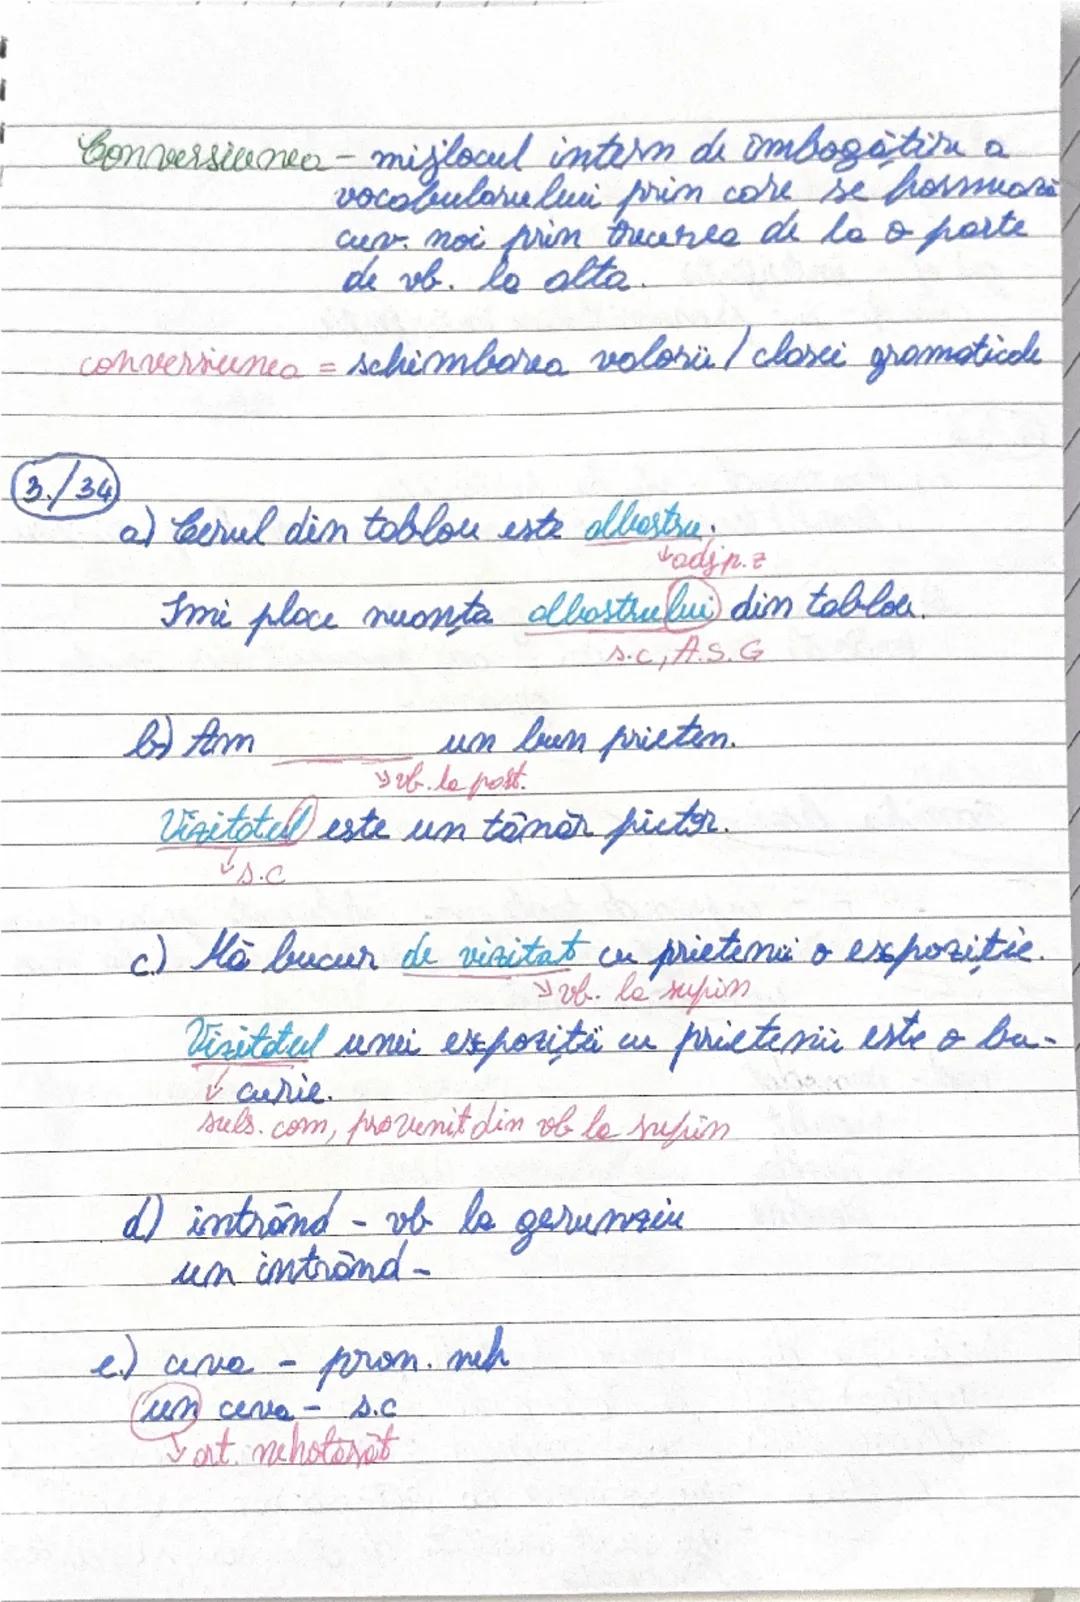 Conversiunea - mijlocul intern de îmbogățire a
vocabularului prin care se formează
cuv. noi prin trecerea de la o parte
de vb. la alta.
conversiunea = schimbarea valorii / clasei gramaticale
3./34
a) Cerul din tablou este albastru.
↓adj p. z
Îmi place nuanța albastrului din tablou.
s.c, A.S.G
b) Am ______ un bun prieten.
↘vb. la part.
Vizitatul este un tânăr pictor.
↓s.c
c) Mă bucur de vizitat cu prietenii o expoziție.
↘vb. la supin
Vizitatul unei expoziții cu prietenii este o bu-
curie.
↓
subs. com, provenit din vb la supin
d) intrând - vb la gerunziu
un intrând -
e.) ceva - pron. neh
un ceva - s.c
↓art. nehotărât